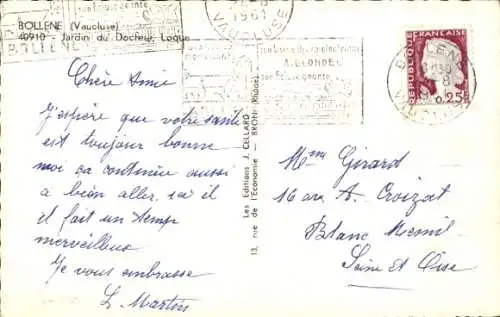 BOLLENE (Vaucluse)
40910 - Jardin du Docteur Loque
BOLLENE
1961
VAUCLUSE
A. BLONDEL
REPUBLIQUE FRANÇAISE
0,25
BOLLENE
VAUCLUSE
Chère Amie
J'espère que votre santé
est toujours bonne
moi ça continue aussi
a bien aller, ici il
fait un temps
merveilleux
Je vous embrasse
L. Martin
Les Editions J. CELLARD
13, rue de l'Economie - BRON (Rhône)
Mme Girard
16 av A. Croizat
Blanc Mesnil
Seine et Oise